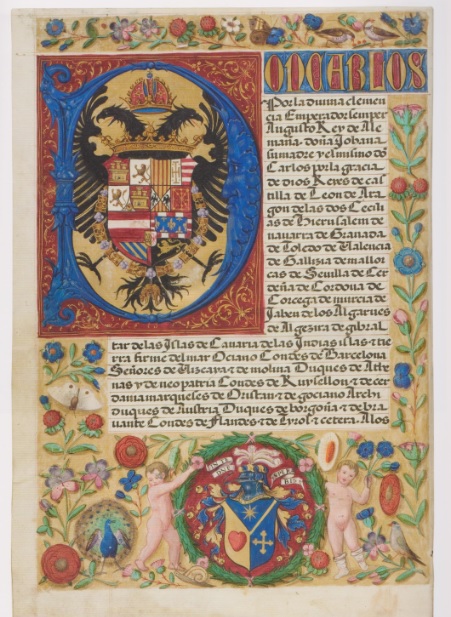 DICARLOS
Por la divina clemen
cia Emperador semper
Augusto Rey de Ale
mania doña Johana
su madre y el mismo dō
Carlos por la gracia
de dios Reyes de cas
tilla de Leon de Ara
gon de las dos Cecili
as de Hierusalem de
navarra de Granada
de Toledo de Valencia
de Gallizia de mallor
cas de Sevilla de Cer
deña de Cordova de
Corcega de murcia de
Jahen de los Algarves
de Algezira de gibral
tar de las Islas de Canaria de las Indias islas & tie
rra firme del mar Oceano Condes de Barcelona
Señores de Vizcaya & de molina Duques de Athe
nas y de neopatria Condes de Ruysellon & de cer
dania marqueses de Oristan & de gociano Archi
duques de Austria Duques de borgoña & de bra
vante Condes de Flandes & de Tirol & cetera. A los